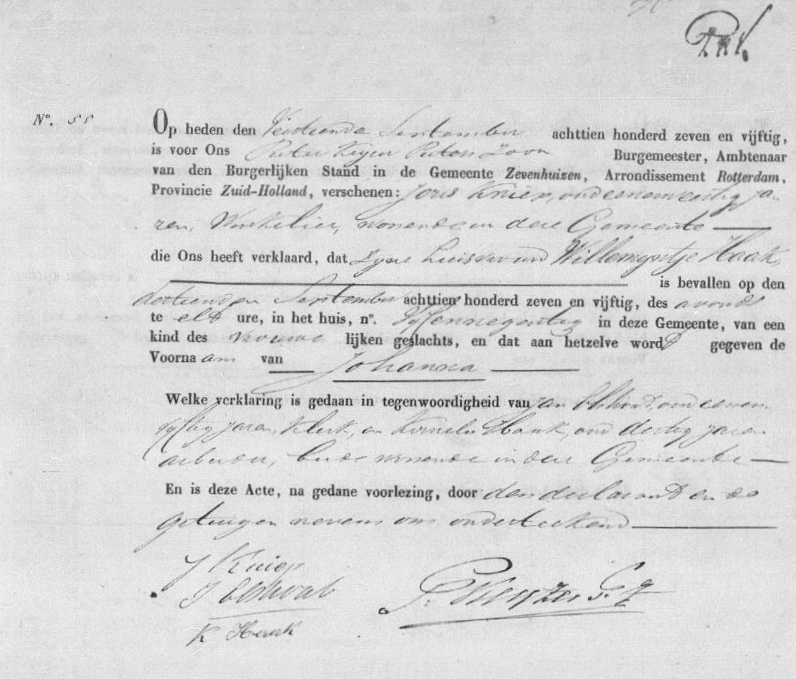 Nº. 55
Op heden den Veertiende September achttien honderd zeven en vijftig,
is voor Ons Pieter Pieters Zoon Burgemeester, Ambtenaar
van den Burgerlijken Stand in de Gemeente Zevenhuizen, Arrondissement Rotterdam,
Provincie Zuid-Holland, verschenen: Joris Kniep, oud eenenveertig ja-
ren, Winkelier, wonende in deze Gemeente
die Ons heeft verklaard, dat Zijne huisvrouw Willemyntje Haak,
is bevallen op den
dertienden September achttien honderd zeven en vijftig, des avonds
te elf ure, in het huis, nº. Vijfennegentig in deze Gemeente, van een
kind des vrouwe lijken geslachts, en dat aan hetzelve word gegeven de
Voorna am van Johanna
Welke verklaring is gedaan in tegenwoordigheid van Jan oud eenen
vijftig jaren, Klerk, en Kornelis Haak, oud dertig jaren
arbeider, beide wonende in deze Gemeente
En is deze Acte, na gedane voorlezing, door den declarant en de
getuigen nevens ons onderteekend
J Kniep
J
K Haak
P.